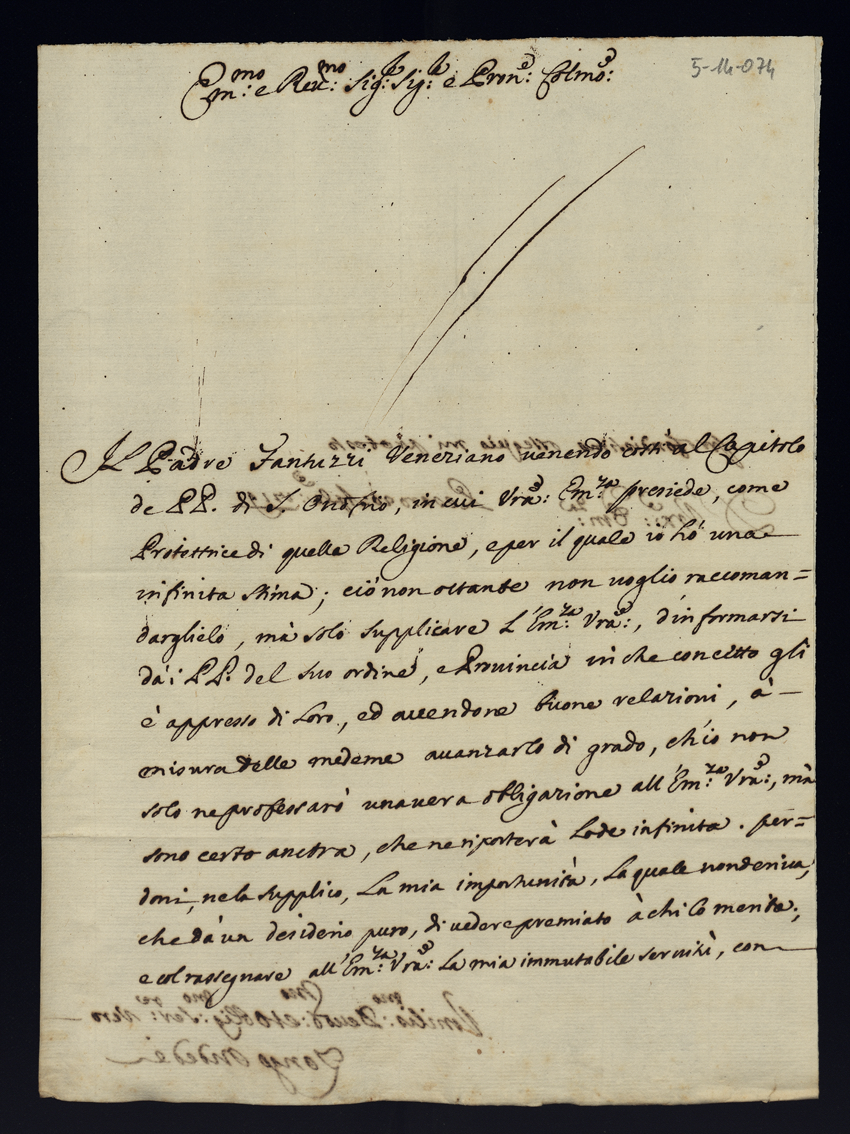 5-14-074
Em:mo e Reu:mo Sig:r Sig:r e Pron:e Colmo:
Il Padre Fantuzzi Veneziano uenendo costi al Capitolo
de PP. di S. Onofrio, in cui Vra: Em:za presiede, come
Protettrice di quella Religione, e per il quale io hò una
infinita stima; ciò non ostante non uoglio raccoman=
darglielo, mà solo supplicare L'Em:za Vra:, d'informarsi
dà i PP. del suo ordine, e Prouincia in che concetto gli
è appresso di Loro, ed auendone buone relazioni, à
misura delle medeme auanzarlo di grado, ch'io non
solo ne professarò una uera obligazione all'Em:za Vra:, mà
sono certo ancora, che ne riporterà Lode infinita. per=
doni, ne la supplico, La mia importunità, La quale non deriua,
che dà un desiderio puro, di uedere premiato à chi Lo merita;
e col rassegnare all'Em:za Vra: La mia immutabile seruitù, con